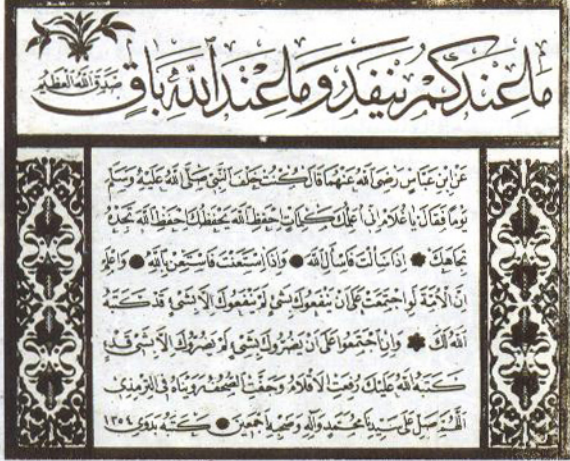 ما عندكم ينفد وما عند الله باق
صدق الله العظيم
عن ابن عباس رضي الله عنهما قال كنت خلف النبي صلى الله عليه وسلم
يوما فقال يا غلام إني أعلمك كلمات احفظ الله يحفظك احفظ الله تجده
تجاهك اذا سألت فاسأل الله واذا استعنت فاستعن بالله واعلم
ان الأمة لو اجتمعت على ان ينفعوك بشئ لم ينفعوك الا بشئ قد كتبه
الله لك وان اجتمعوا على ان يضروك بشئ لم يضروك الا بشئ قد
كتبه الله عليك رفعت الأقلام وجفت الصحف رويناه في الترمذي
اللهم صل على سيدنا محمد وآله وصحبه أجمعين كتبه بدوى ١٣٥٤